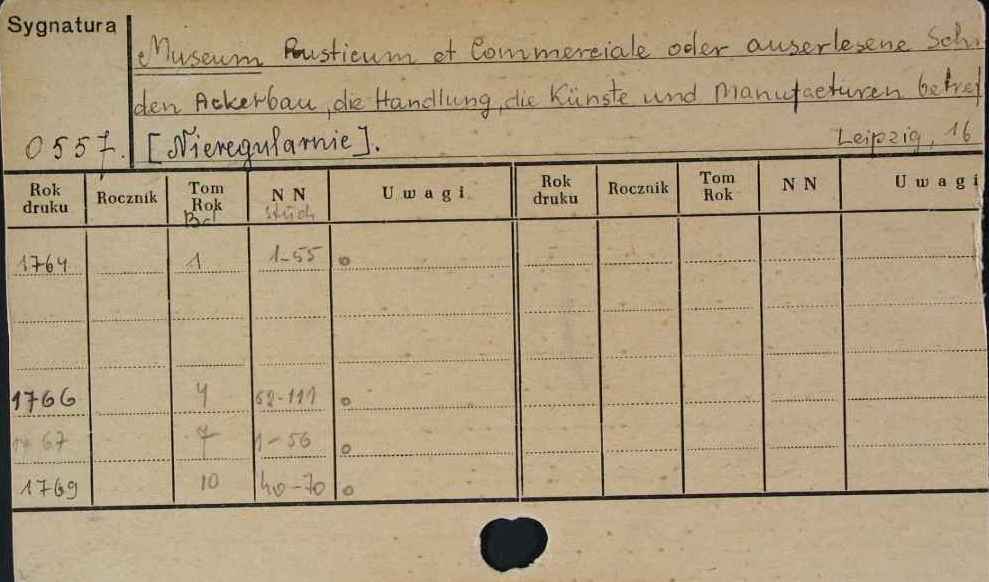 Sygnatura
Museum Rusticum et Commerciale oder auserlesene Sch
den Ackerbau, die Handlung, die Künste und Manufacturen betref
0557. [Nieregularnie]. Leipzig, 16
Rok druku Rocznik Tom Rok N N Uwagi Rok druku Rocznik Tom Rok N N Uwagi
Bd stück
1764 1 1-55
1766 4 -111
67 7 1-56
1769 10 40-70